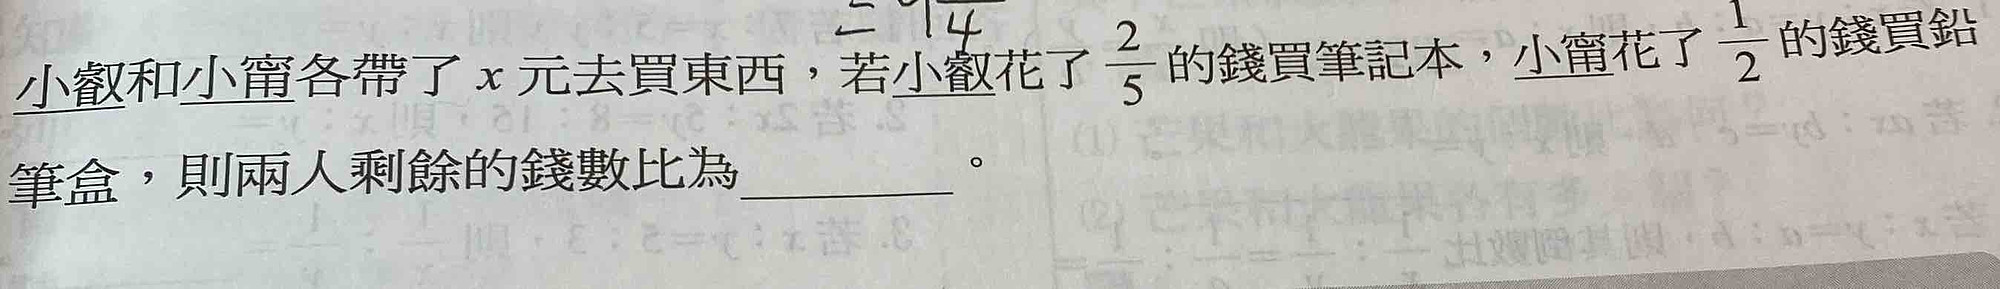 小叡和小甯各帶了 x 元去買東西，若小叡花了 2/5 的錢買筆記本，小甯花了 1/2 的錢買鉛
筆盒，則兩人剩餘的錢數比為________。